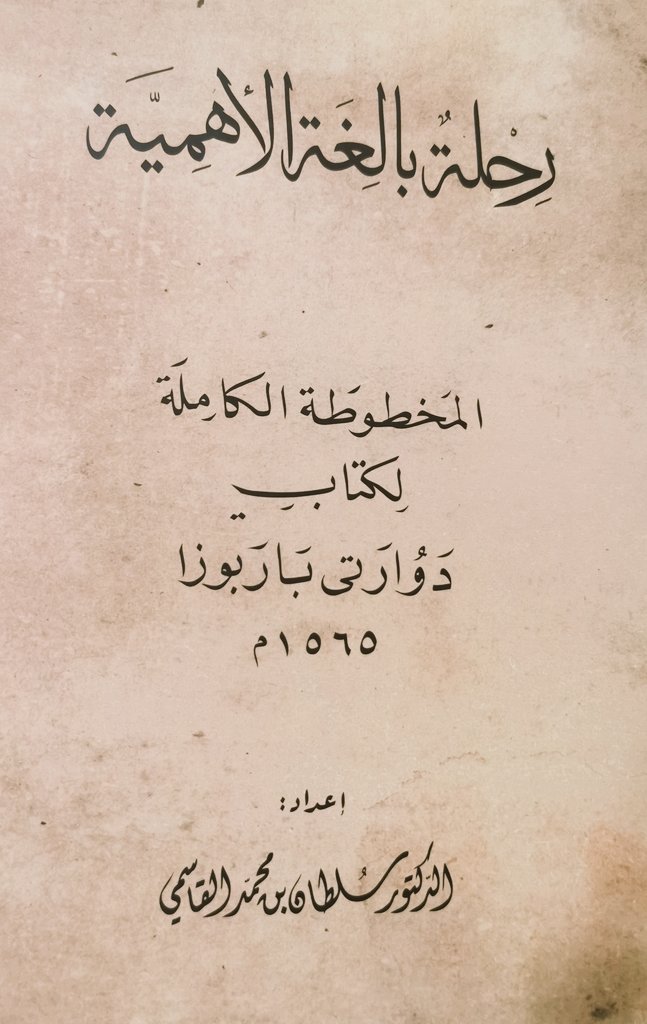 رِحْلةٌ بالِغَة الأهمِيَّة
المَخطوطَة الكامِلَة
لِكتابِ
دَوُارَتى بَارَبوزا
١٥٦٥م
إعداد:
الدّكتور سُلطان بن محمّد القاسمي